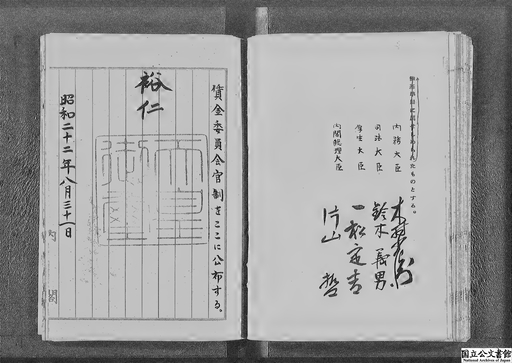 内務大臣 木村小左衛門
司法大臣 鈴木義男
厚生大臣 一松定吉
内閣総理大臣 片山哲
賃金委員会官制をここに公布する。
裕仁
天皇御璽
昭和二十二年八月三十一日
内閣
国立公文書館
National Archives of Japan